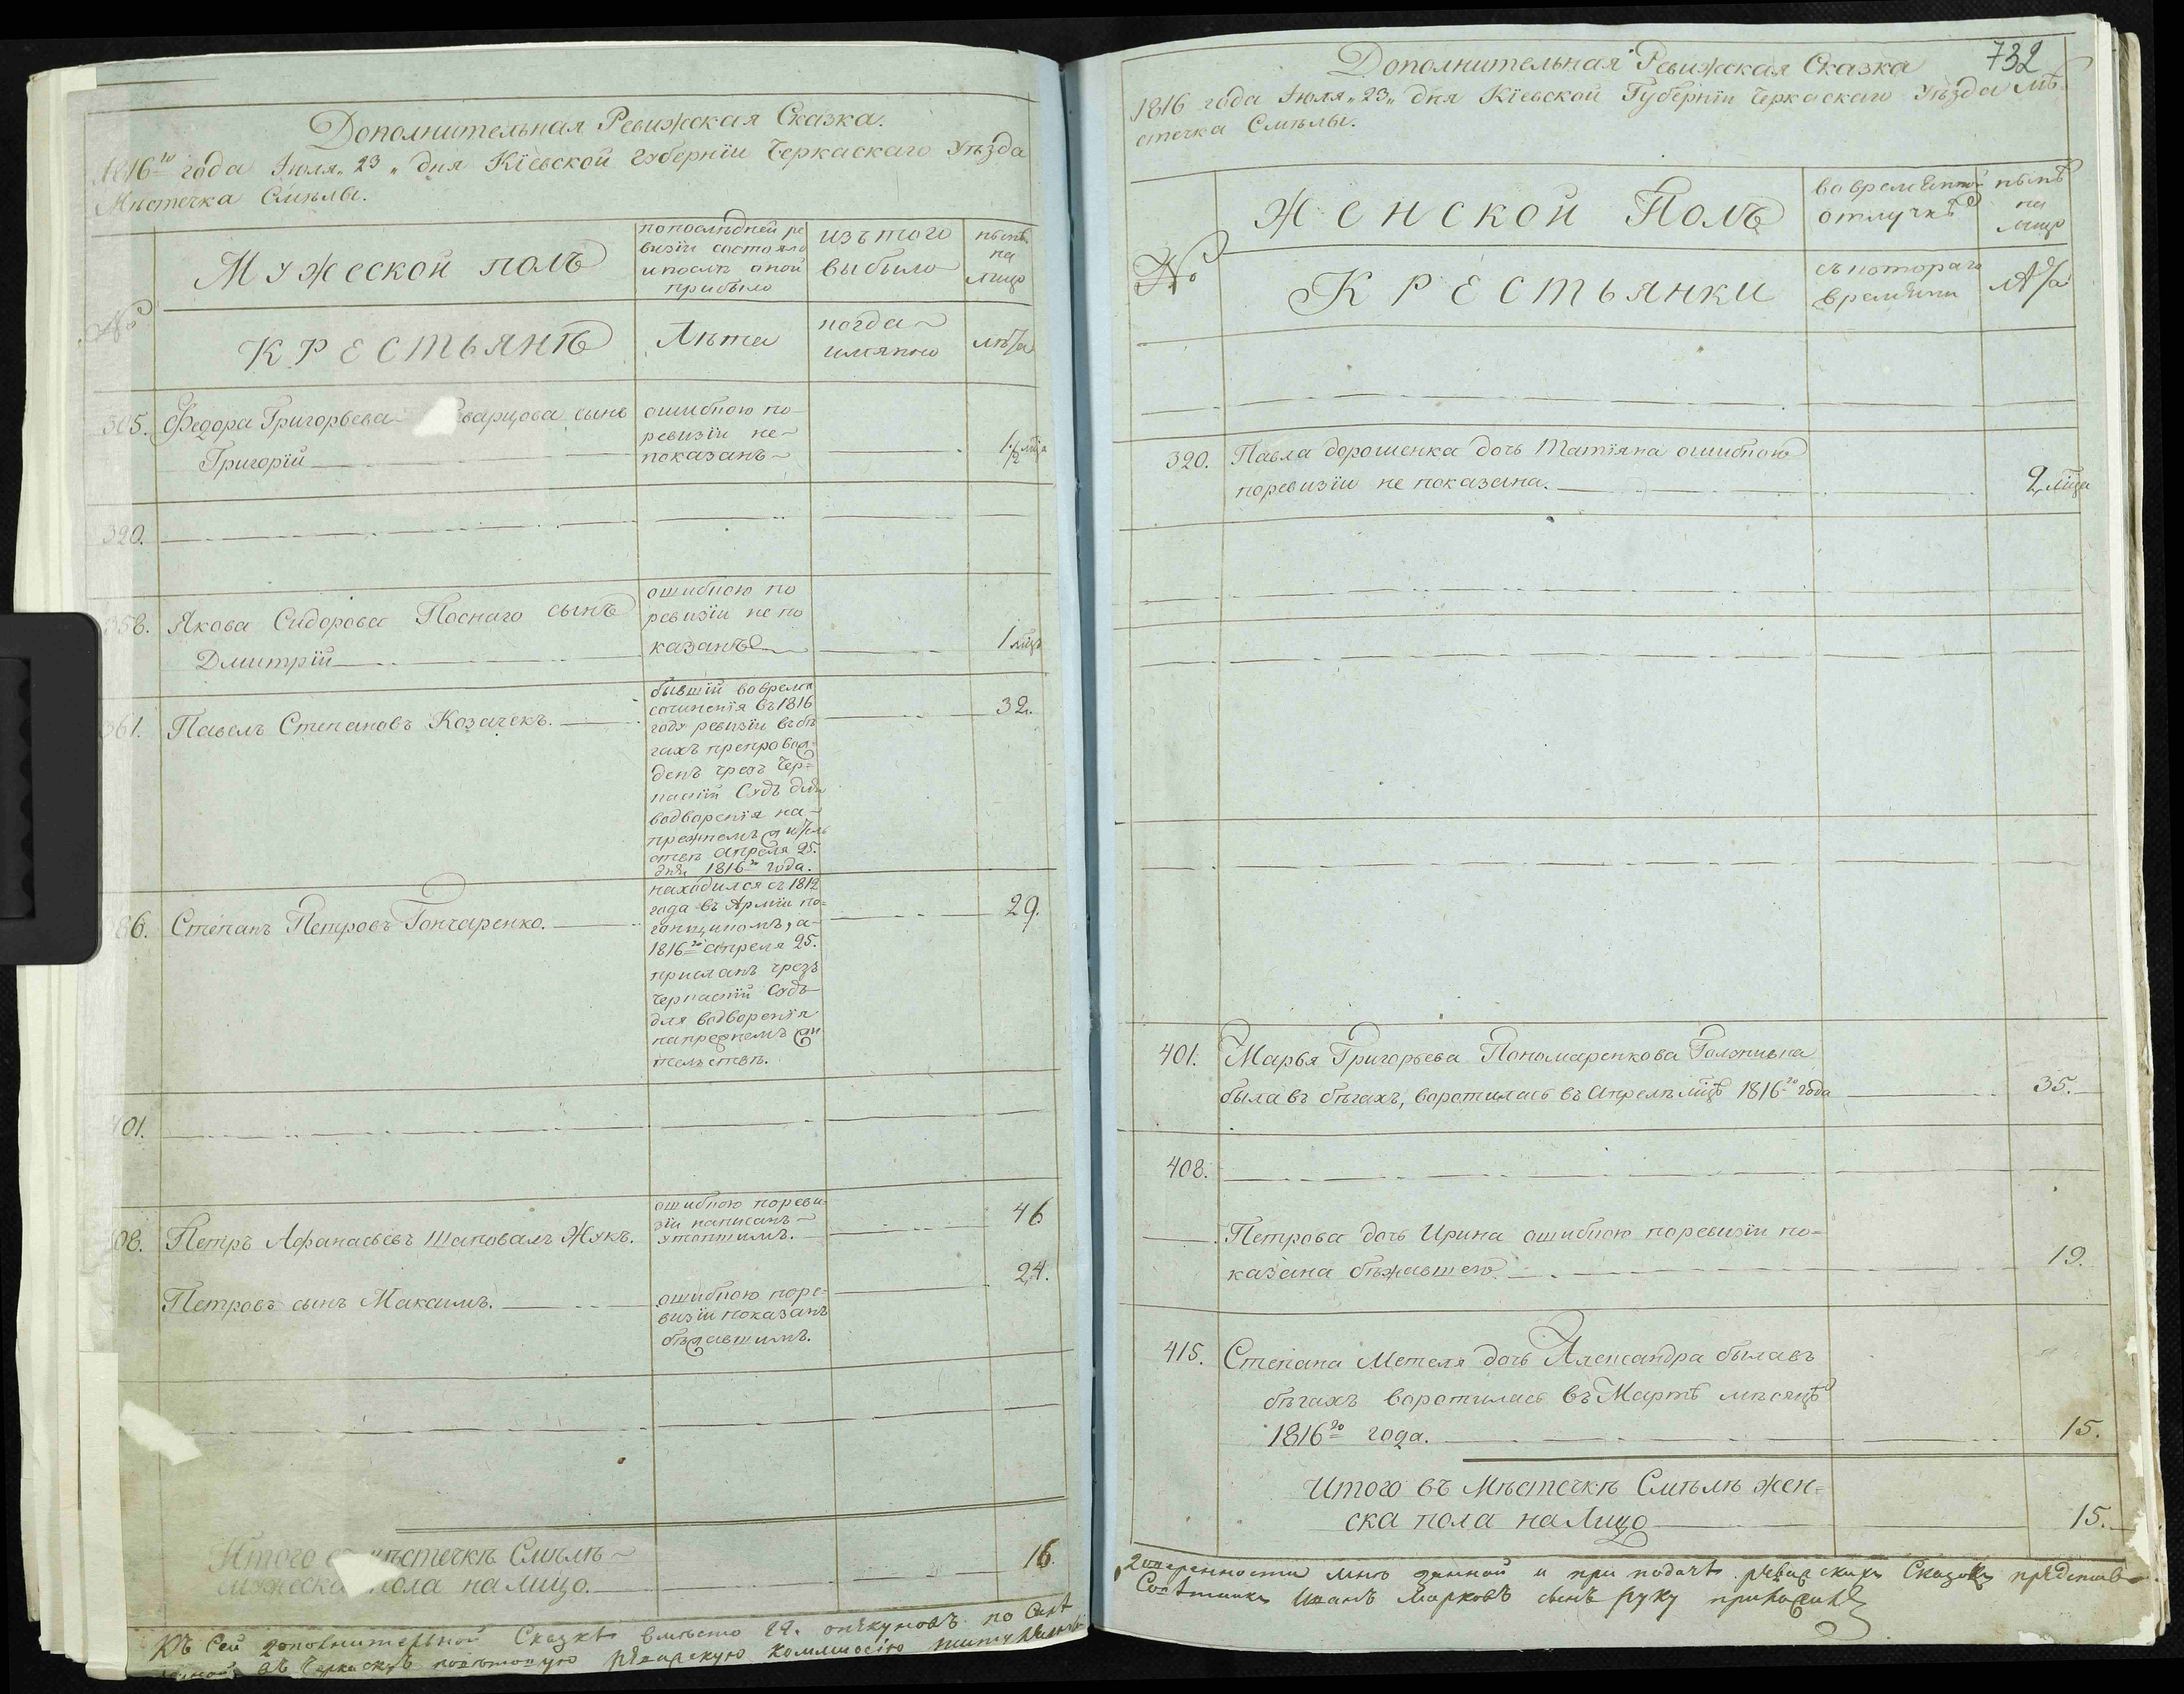 Дополнительная Ревижская Сказка.
1816го года Июля „23„ дня Кіевской губерніи Черкаскаго Уѣзда
Мѣстечка Смѣлы.
№
Мужеской полъ
по послѣдней ре
визіи состояло
и послѣ оной
прибыло
изъ того
выбыло
нынѣ
на
лицо
Крестьянъ
Лѣта
когда
имянно
лѣта
305. Федора Григорьева варцова сынъ
Григорій
ошибкою по
ревизіи не
показанъ
1/2
320.
358. Якова Сидорова Поснаго сынъ
Дмитрій
ошибкою по
ревизіи не по
казанъ
1
361. Павелъ Степановъ Козачекъ.
бывшій вовремя
сочиненія въ 1816
году ревизіи въ бѣ
гахъ препровож=
денъ чрезъ Чер=
каскій Судъ для
водворенія на
прежнемъ жител
ствѣ Апреля 25.
дня 1816го года.
32.
86. Степанъ Петровъ Гончаренко.
находился съ 1812
года въ Арміи по=
гонщикомъ, а
1816го апреля 25.
присланъ чрезъ
Черкаскій Судъ
для водворенія
на прежнемъ жи
тельствѣ.
29.
401.
408. Петръ Афанасьевъ Шаповалъ Жукъ.
ошибкою по реви
зіи написанъ
утопшимъ.
46
Петровъ сынъ Максимъ.
ошибкою по ре=
визіи показанъ
бѣжавшимъ.
24.
Итого въ мѣстечкѣ Смѣлѣ
мужеска пола на лицо.
16.
Къ сей дополнительной Сказкѣ вмѣсто опѣкуновъ по
въ Черкаскъ ревизскую Коммиссію
732
Дополнительная Ревижская Сказка
1816 года Июля „23„ дня Кіевской Губерніи Черкаскаго Уѣзда Мѣ=
стечка Смѣлы.
№
Женской Полъ
во временной
отлучкѣ
нынѣ
на
лицо
Крестьянки
съ котораго
времяни
Лѣта
320. Павла Дорошенка дочь Татіяна ошибкою
по ревизіи не показана.
2
401. Марья Григорьева Пономаренкова
была въ бѣгахъ, воротилась въ Апрелѣ мцѣ 1816го года
35.
408.
Петрова дочь Ирина ошибкою по ревизіи по=
казана бѣжавшею
19.
415. Степана Метеля дочь Александра была въ
бѣгахъ воротилась въ Мартѣ мѣсяцѣ
1816го года.
15.
Итого въ Мѣстечкѣ Смѣлѣ жен=
ска пола на Лицо
15.
довѣренности мнѣ данной и при подачѣ ревизскихъ Сказокъ представ
Иванъ Марковъ сынъ руку приложилъ